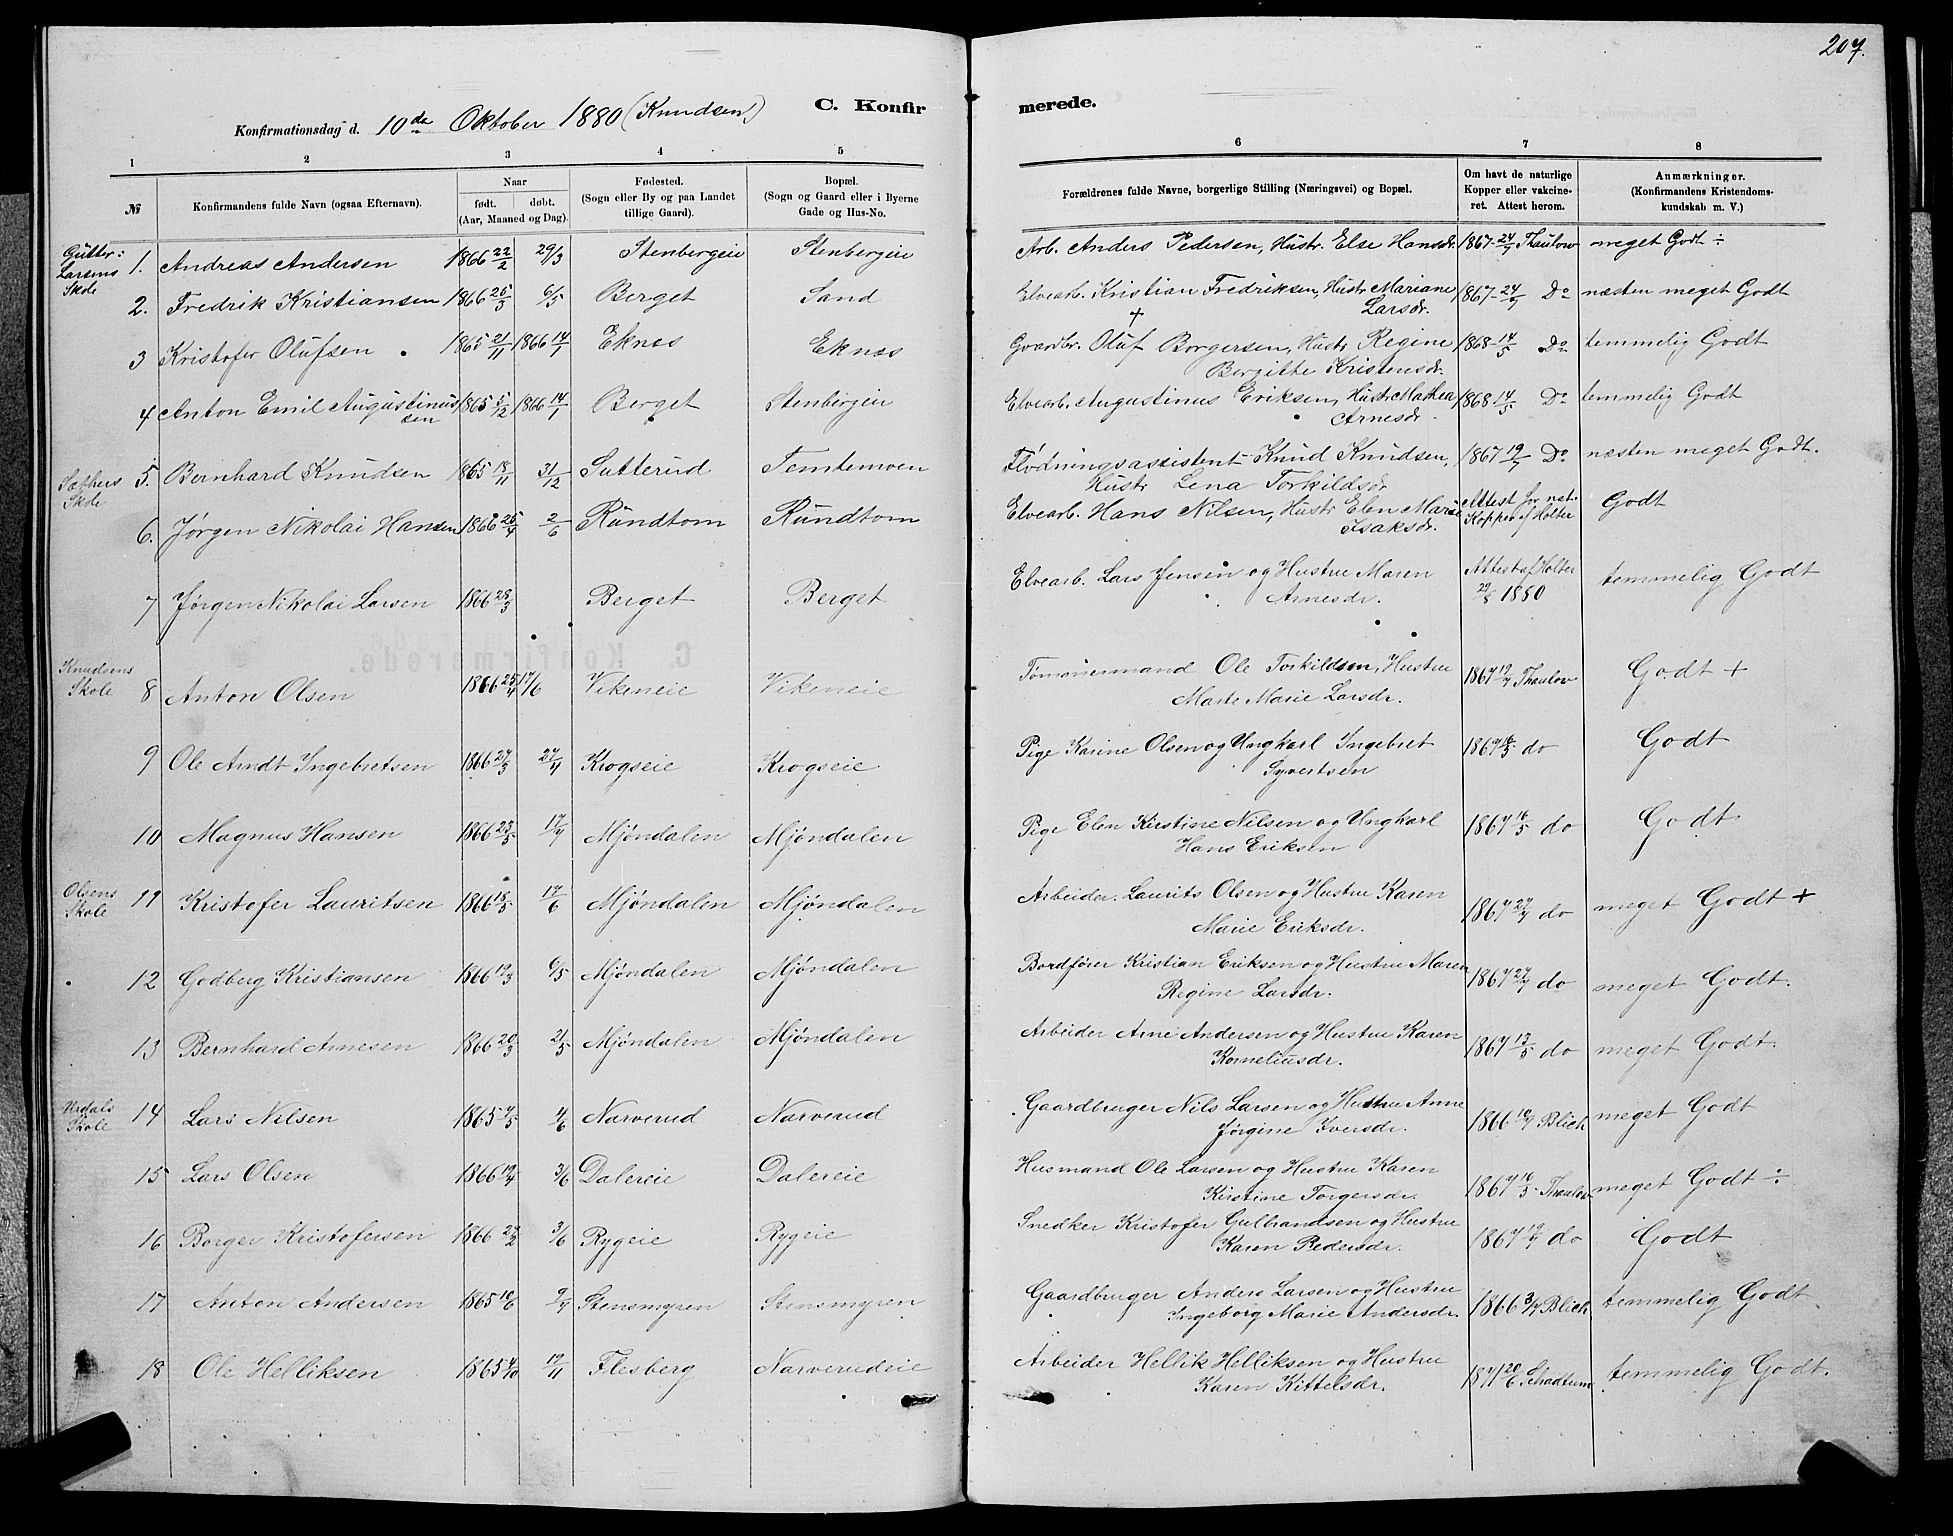 207.
C. Konfirmerede.
Konfirmationsdag d. 10de Oktober 1880 (Knudsen)
1 2 3 4 5 6 7 8
№ Konfirmandens fulde Navn (ogsaa Efternavn). Naar født. døbt. (Aar, Maaned og Dag). Fødested. (Sogn eller By og paa Landet tillige Gaard). Bopæl. (Sogn og Gaard eller i Byerne Gade og Hus-No. Forældrenes fulde Navne, borgerlige Stilling (Næringsvei) og Bopæl. Om havt de naturlige Kopper eller vakcineret. Attest herom. Anmærkninger. (Konfirmandens Kristendomskundskab m. V.)
Gutter:
Larsens Skole
1. Andreas Andersen 1866 22/2 29/3 Stenbergeie Stenbergeie Arb. Anders Pedersen, Hustr. Else Hansdr. 1867 24/7 Thaulow meget Godt ÷
2. Fredrik Kristiansen 1866 25/3 6/5 Berget Sand Elvearb. Kristian Fredriksen, Hustr. Mariane Larsdr. 1867 24/7 Do næsten meget Godt
3 Kristofer Olufsen 1865 21/11 1866 14/1 Eknes Eknes Gaardbr. † Oluf Borgersen, Hustr Regine Bergitte Kristensdr. 1868 14/5 Do temmelig Godt
4 Anton Emil Augustinussen 1865 5/12 1866 14/1 Berget Stenbergeie Elvearb. Augustinus Eriksen, Hustr. Mathea Arnesdr. 1868 14/5 Do temmelig Godt
Sæthers Skole
5. Bernhard Knudsen 1865 18/11 31/12 Sutterud Temtemoen Flødningsassistent Knud Knudsen, Hustr Lena Torkildsdr 1867 19/7 Do næsten meget Godt.
6. Jørgen Nikolai Hansen 1866 25/4 2/6 Rundtom Rundtom Elvearb. Hans Nilsen, Hustr Elen Marie Isaksdr. Attest for nat. Kopper af Holter Godt
7 Jørgen Nikolai Larsen 1866 28/3 Berget Berget Elvearb. Lars Jensen og Hustru Maren Arnesdr. Attest af Holter 29/8 1880 temmelig Godt
Knudsens Skole
8 Anton Olsen 1866 25/4 17/6 Vikeneie Vikeneie Tømmermand Ole Torkildsen, Hustru Marte Marie Larsdr. 1867 19/7 Thaulow Godt +
9 Ole Arndt Ingebretsen 1866 27/3 27/4 Krogseie Krogseie Pige Karine Olsen og Ungkarl Ingebret Syvertsen 1867 16/5 do Godt
10 Magnus Hansen 1866 23/5 17/7 Mjøndalen Mjøndalen Pige Elen Kirstine Nilsen og Ungkarl Hans Eriksen 1867 16/5 do Godt
Olsens Skole
11 Kristofer Lauritsen 1866 18/5 17/6 Mjøndalen Mjøndalen Arbeider. Laurits Olsen og Hustru Karen Marie Eriksdr. 1867 27/7 do meget Godt +
12 Godberg Kristiansen 1866 19/3 6/5 Mjøndalen Mjøndalen Bordfører Kristian Eriksen og Hustru Maren Regine Larsdr. 1867 27/7 do meget Godt.
13 Bernhard Arnesen 1866 20/3 21/5 Mjøndalen Mjøndalen Arbeider Arne Andersen og Hustru Karen Korneliusdr. 1867 13/5 do meget Godt.
Urdals Skole
14 Lars Nilsen 1865 4/5 4/6 Narverud Narverud Gaardbruger Nils Larsen og Hustru Anne Jørgine Iversdr. 1866 10/7 Blich meget Godt
15 Lars Olsen 1866 19/4 3/6 Dalereie Dalereie Husmand Ole Larsen og Hustru Karen Kirstine Torgersdr. 1867 16/5 Thaulow meget Godt ÷
16 Borger Kristofersen 1866 27/2 3/6 Rygeie Rygeie Snedker Kristofer Gulbrandsen og Hustru Karen Pedersdr. 1867 19/7 do Godt
17 Anton Andersen 1865 10/6 9/7 Stensmyren Stensmyren Gaardbruger Anders Larsen og Hustru Ingeborg Marie Andersdr. 1866 3/7 Blich temmelig Godt
18 Ole Helliksen 1865 4/10 19/11 Flesberg Narverudeie Arbeider Hellik Helliksen og Hustru Karen Kittelsdr. 1871 20/6 Schadtum temmelig Godt.